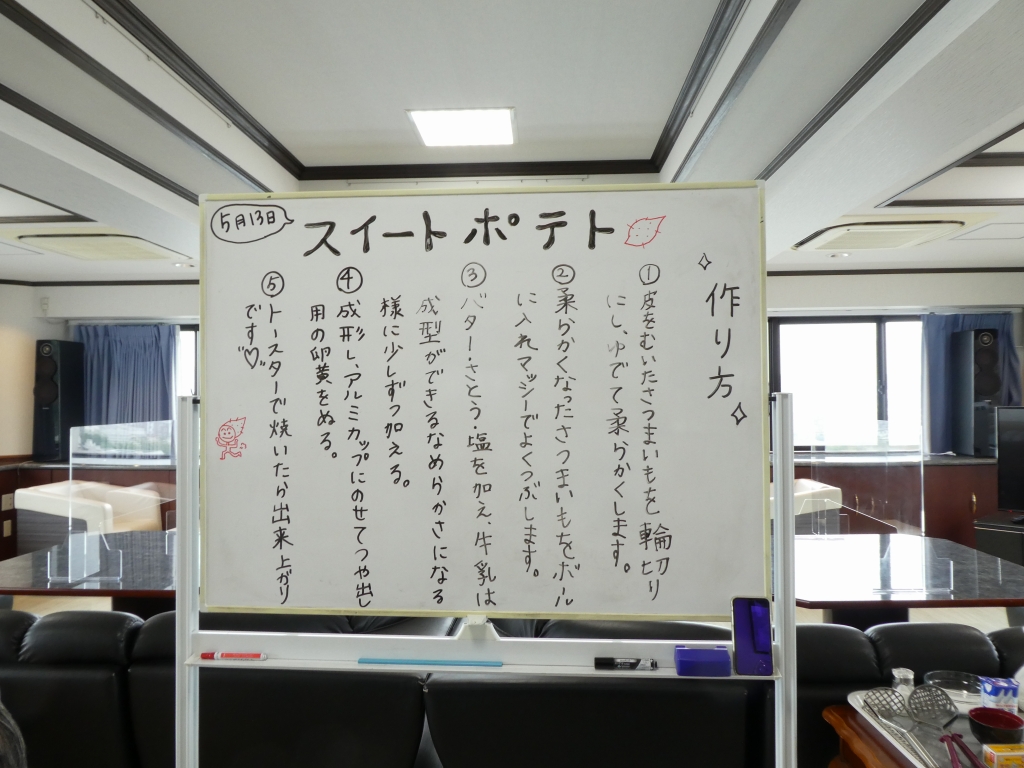 5月13日
スイートポテト
作り方
①皮をむいたさつまいもを輪切り
にし、ゆでて柔らかくします。
②柔らかくなったさつまいもをボール
に入れマッシーでよくつぶします。
③バター・さとう・塩を加え、牛乳は
成型ができるなめらかさになる
様に少しずつ加える。
④成形し、アルミカップにのせてつや出し
用の卵黄をぬる。
⑤トースターで焼いたら出来上がり
です♡